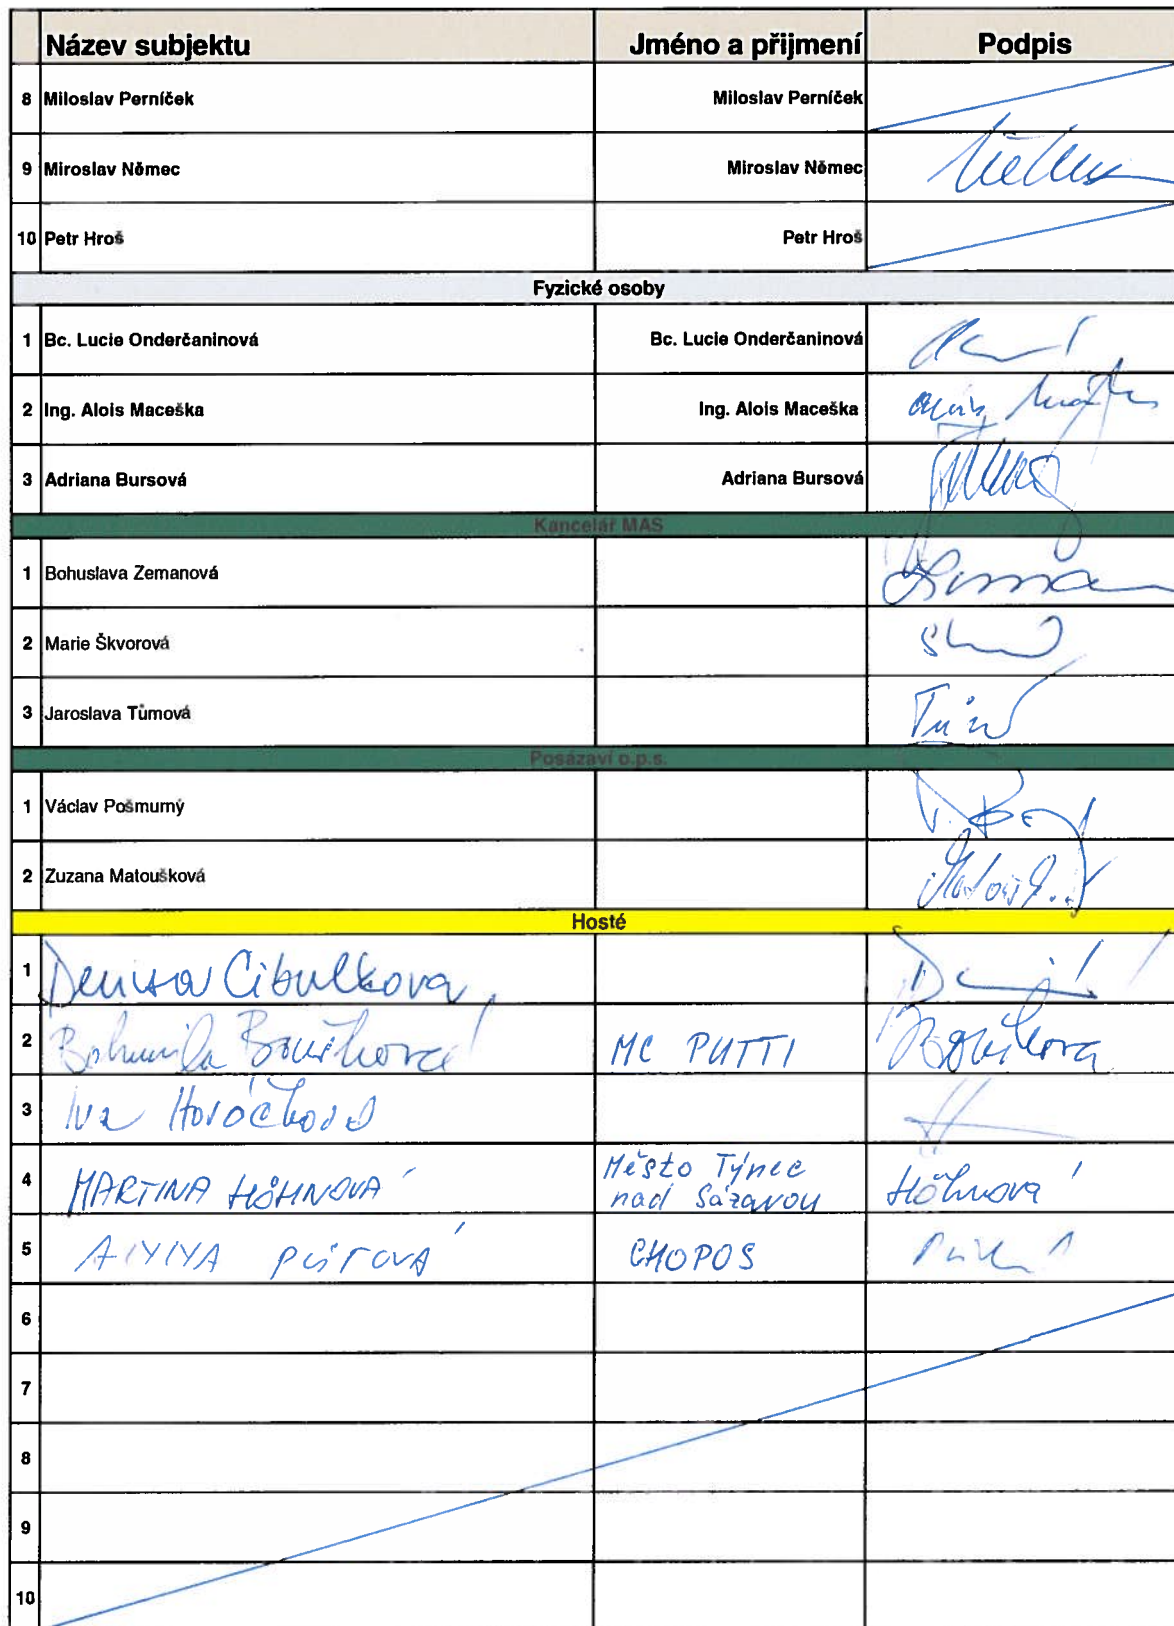 Název subjektu Jméno a přijmení Podpis
8 Miloslav Perníček Miloslav Perníček
9 Miroslav Němec Miroslav Němec
10 Petr Hroš Petr Hroš
Fyzické osoby
1 Bc. Lucie Onderčaninová Bc. Lucie Onderčaninová
2 Ing. Alois Maceška Ing. Alois Maceška
3 Adriana Bursová Adriana Bursová
Kancelář MAS
1 Bohuslava Zemanová
2 Marie Škvorová
3 Jaroslava Tůmová
Posázaví o.p.s.
1 Václav Pošmurný
2 Zuzana Matoušková
Hosté
1 Denisa Cibulkova
2 Bohumila MC PUTTI
3 Iva
4 MARTINA HÖHNOVÁ Město Týnec
nad Sázavou Höhnová
5 CHOPOS
6
7
8
9
10